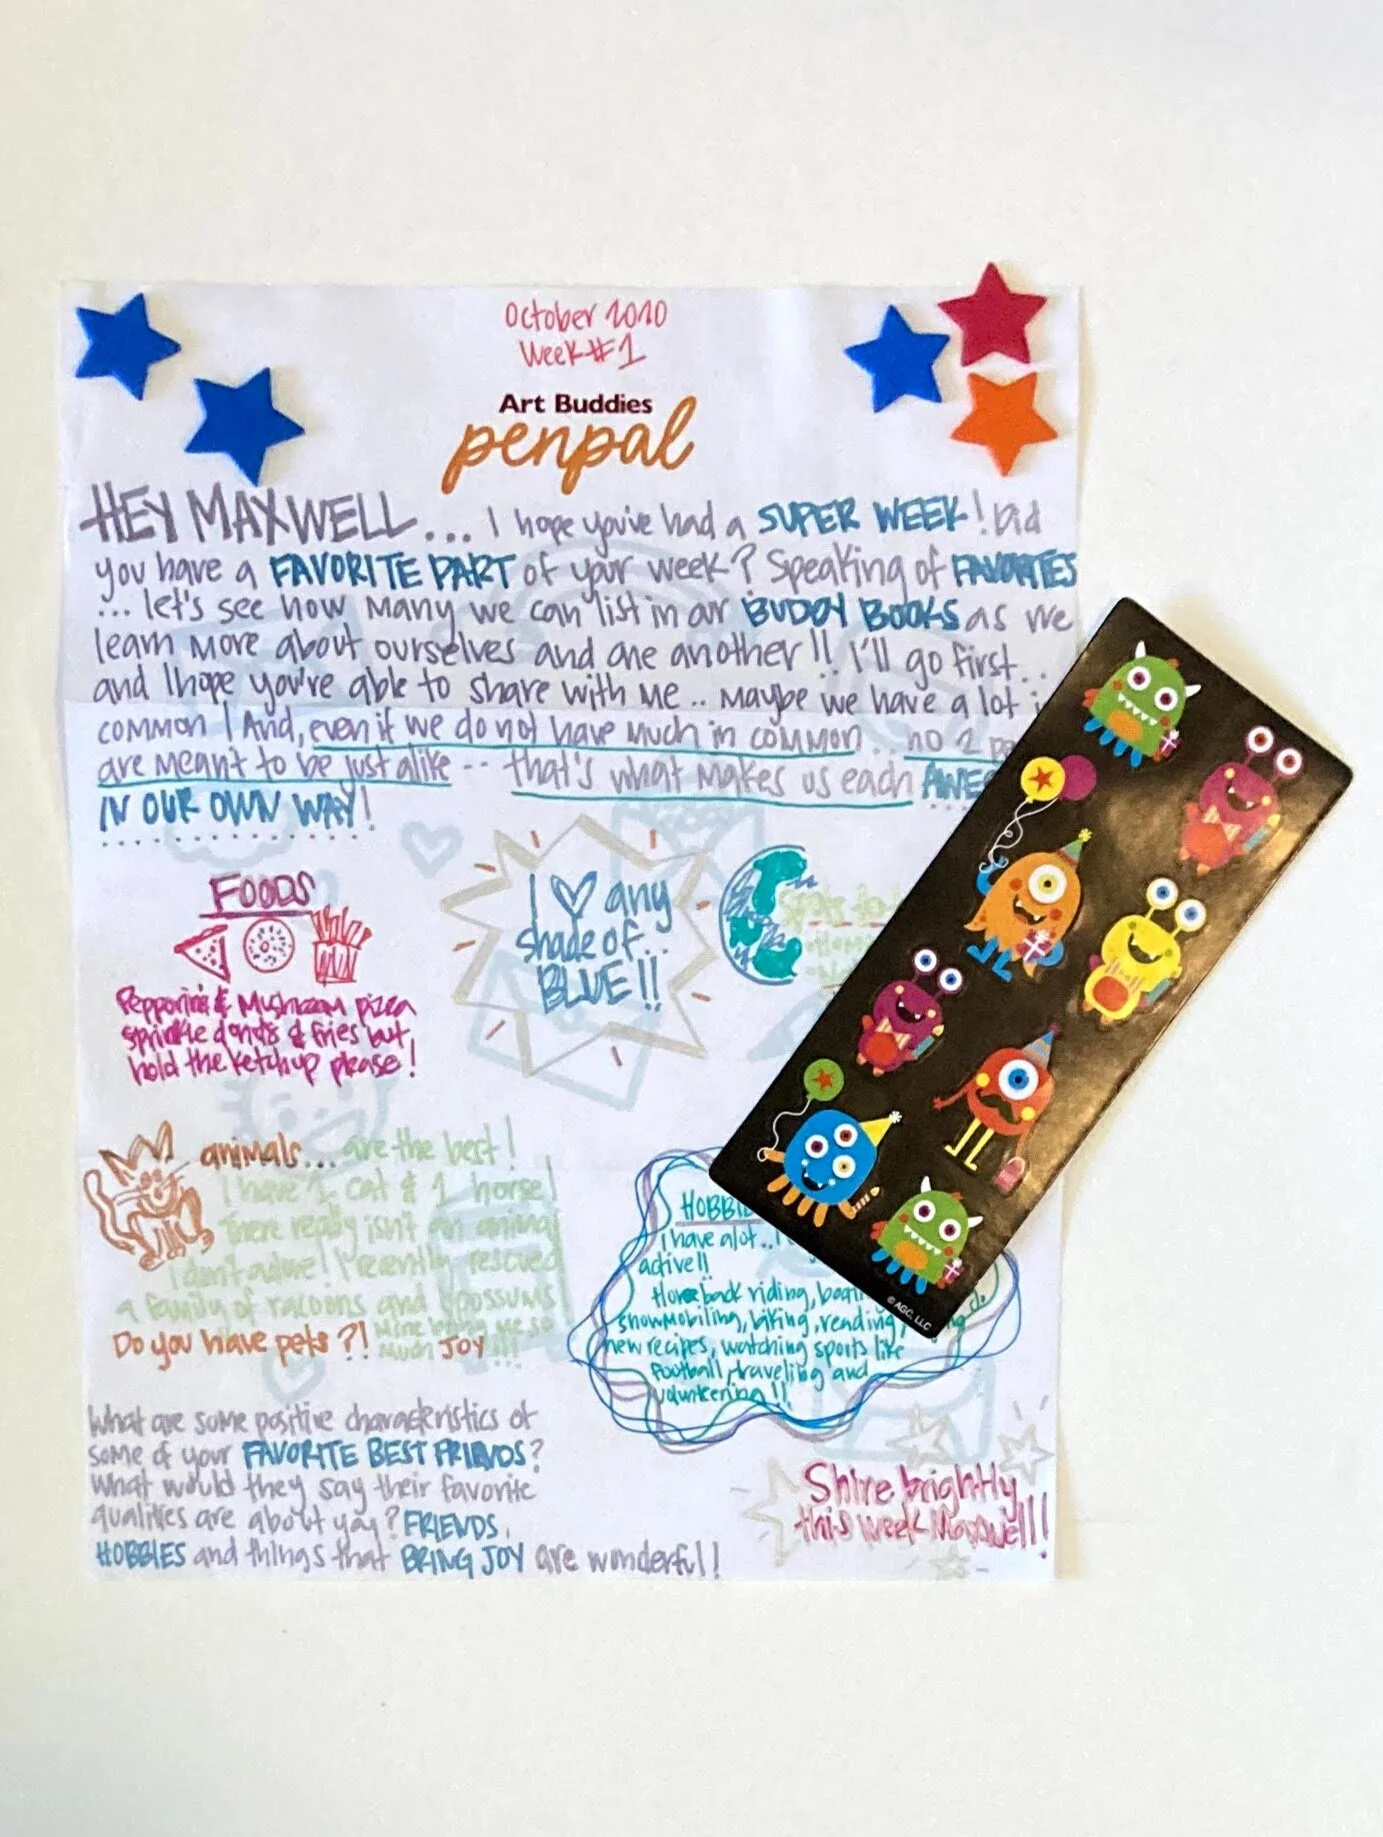 October 2020
Week #1
Art Buddies
penpal
HEY MAXWELL... I hope you've had a SUPER WEEK! Did
you have a FAVORITE PART of your week? Speaking of FAVORITES
... let's see how many we can list in our BUDDY BOOKS as we
learn more about ourselves and one another!! I'll go first..
and I hope you're able to share with me.. Maybe we have a lot
common! And, even if we do not have much in common.. no 2
are meant to be just alike -- that's what makes us each AWES
IN OUR OWN WAY!
FOODS
Pepperoni & Mushroom pizza
sprinkle donuts & fries but,
hold the ketchup please!
I ♡ any
shade of..
BLUE!!
animals... are the best!
I have 1 cat & 1 horse!
There really isn't an animal
I don't adore! I recently rescued
a family of racoons and opossums
Do you have pets?! Mine bring me so
much JOY!!!
HOBBIE
I have alot..
active!!
Horseback riding,
snowmobiling, biking, reading,
new recipes, watching sports like
football, traveling and
volunteering!!
What are some positive characteristics of
some of your FAVORITE BEST FRIENDS?
What would they say their favorite
qualities are about you? FRIENDS,
HOBBIES and things that BRING JOY are wonderful!
Shine brightly
this week Maxwell!
© AGC, LLC